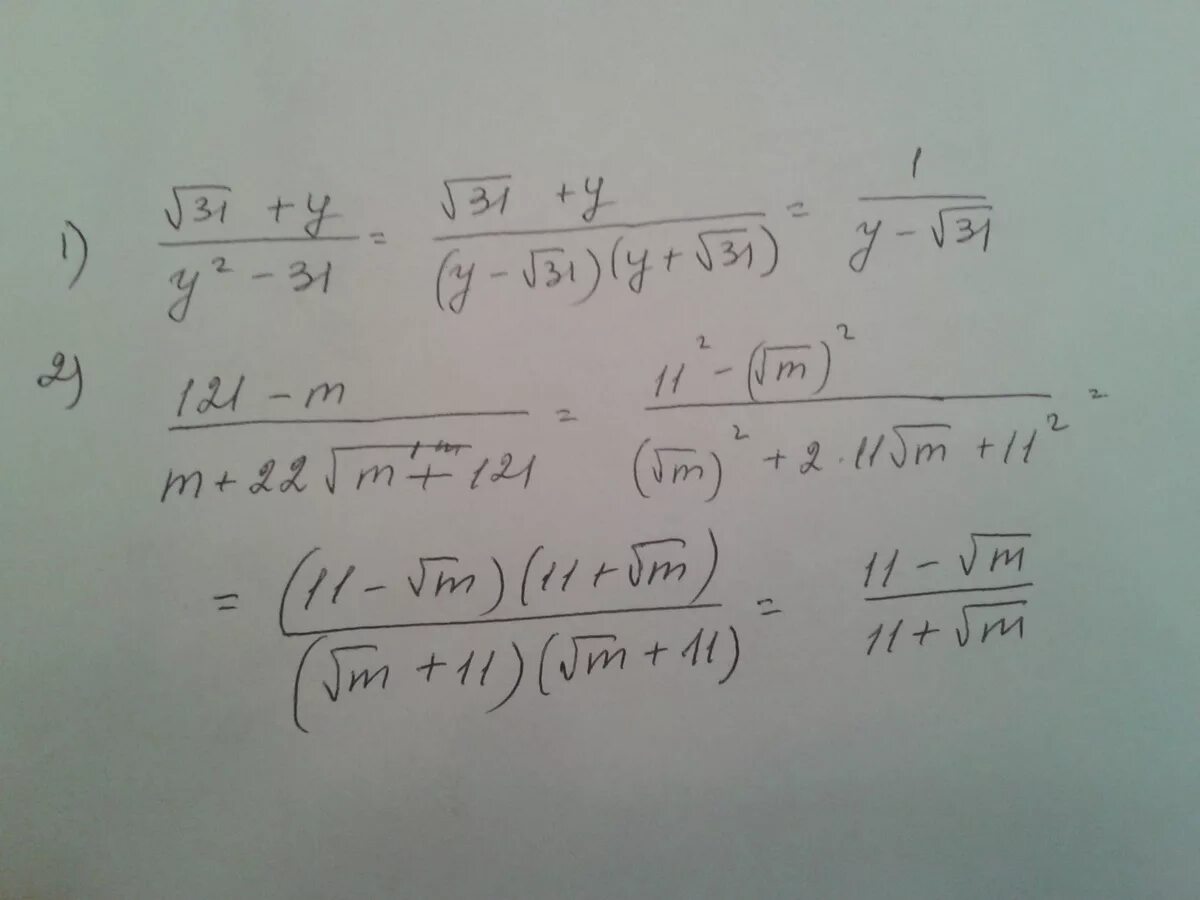 1) (√31 + y)/(y² - 31) = (√31 + y)/((y - √31)(y + √31)) = 1/(y - √31)
2) (121 - m)/(m + 22√m + 121) = (11² - (√m)²)/((√m)² + 2·11√m + 11²) =
= ((11 - √m)(11 + √m))/((√m + 11)(√m + 11)) = (11 - √m)/(11 + √m)